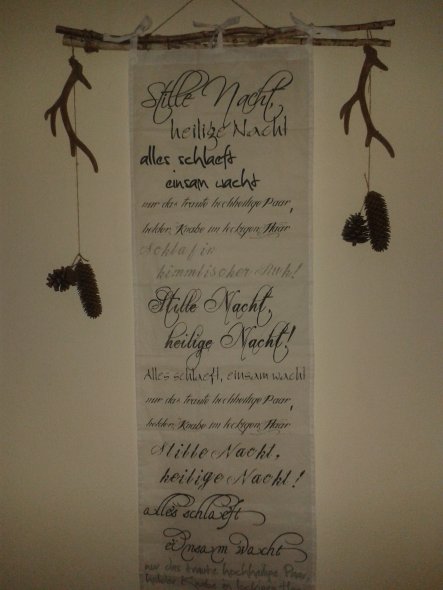 Stille Nacht,
heilige Nacht
alles schlaeft
einsam wacht
nur das traute hochheilige Paar,
holder Knabe im lockigen Haar
Schlaf in
himmlischer Ruh!
Stille Nacht,
heilige Nacht!
Alles schlaeft, einsam wacht
nur das traute hochheilige Paar,
holder Knabe im lockigen Haar
Stille Nacht,
heilige Nacht!
alles schlaeft
einsam wacht
nur das traute hochheilige Paar,
holder Knabe im